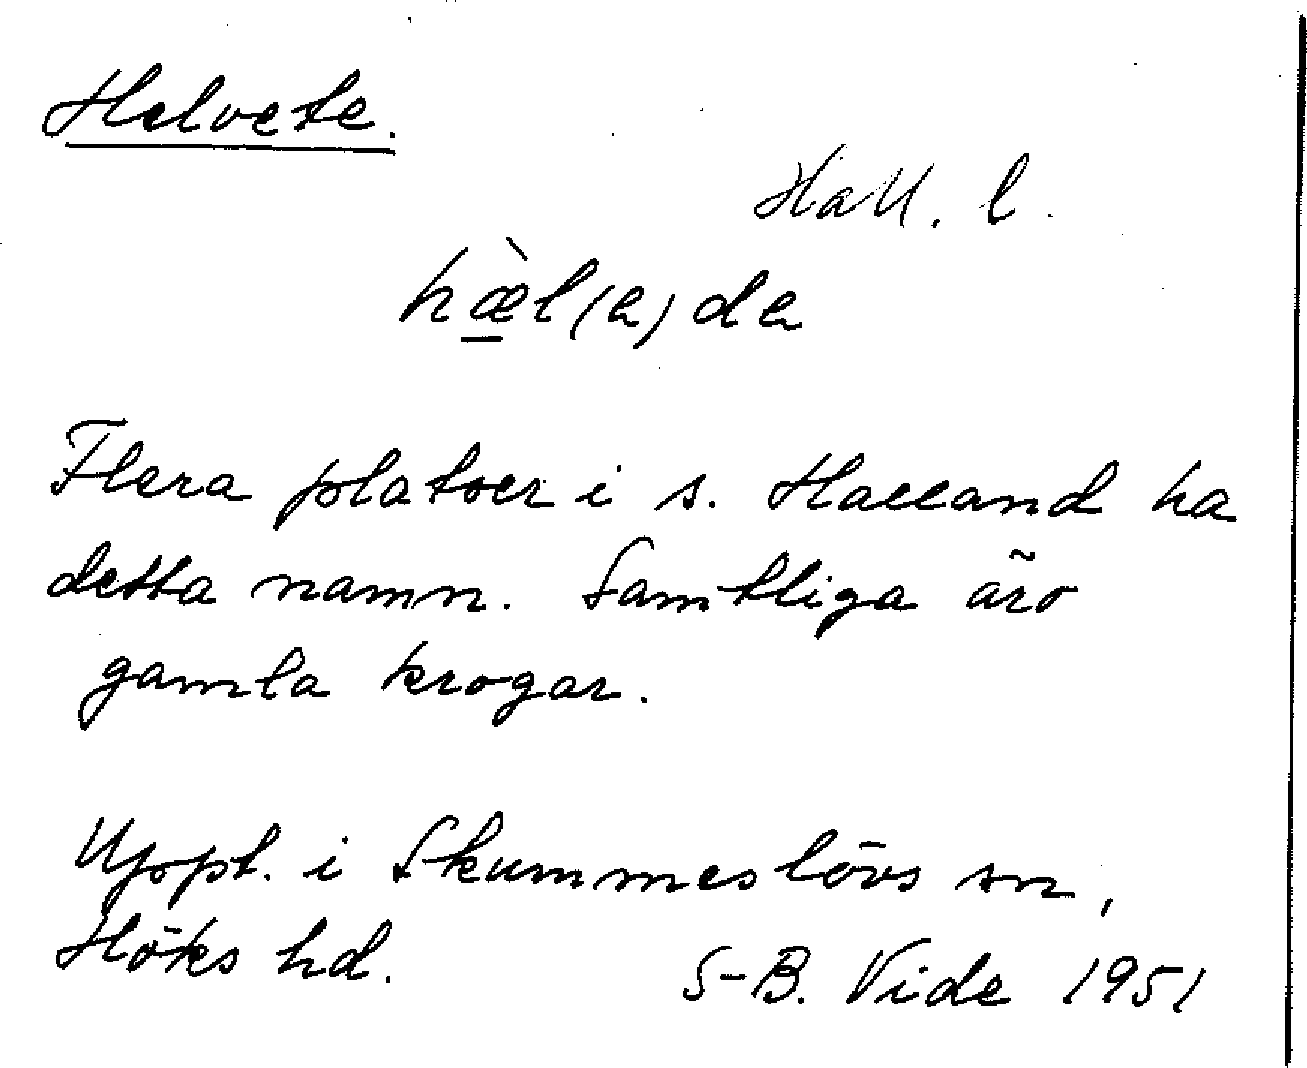 Helvete.
Hall. l.
hæ̠̀l(ə)də
Flera platser i s. Halland ha
detta namn. Samtliga äro
gamla krogar.
Uppt. i Skummeslövs sn,
Höks hd.
S-B. Vide 1951